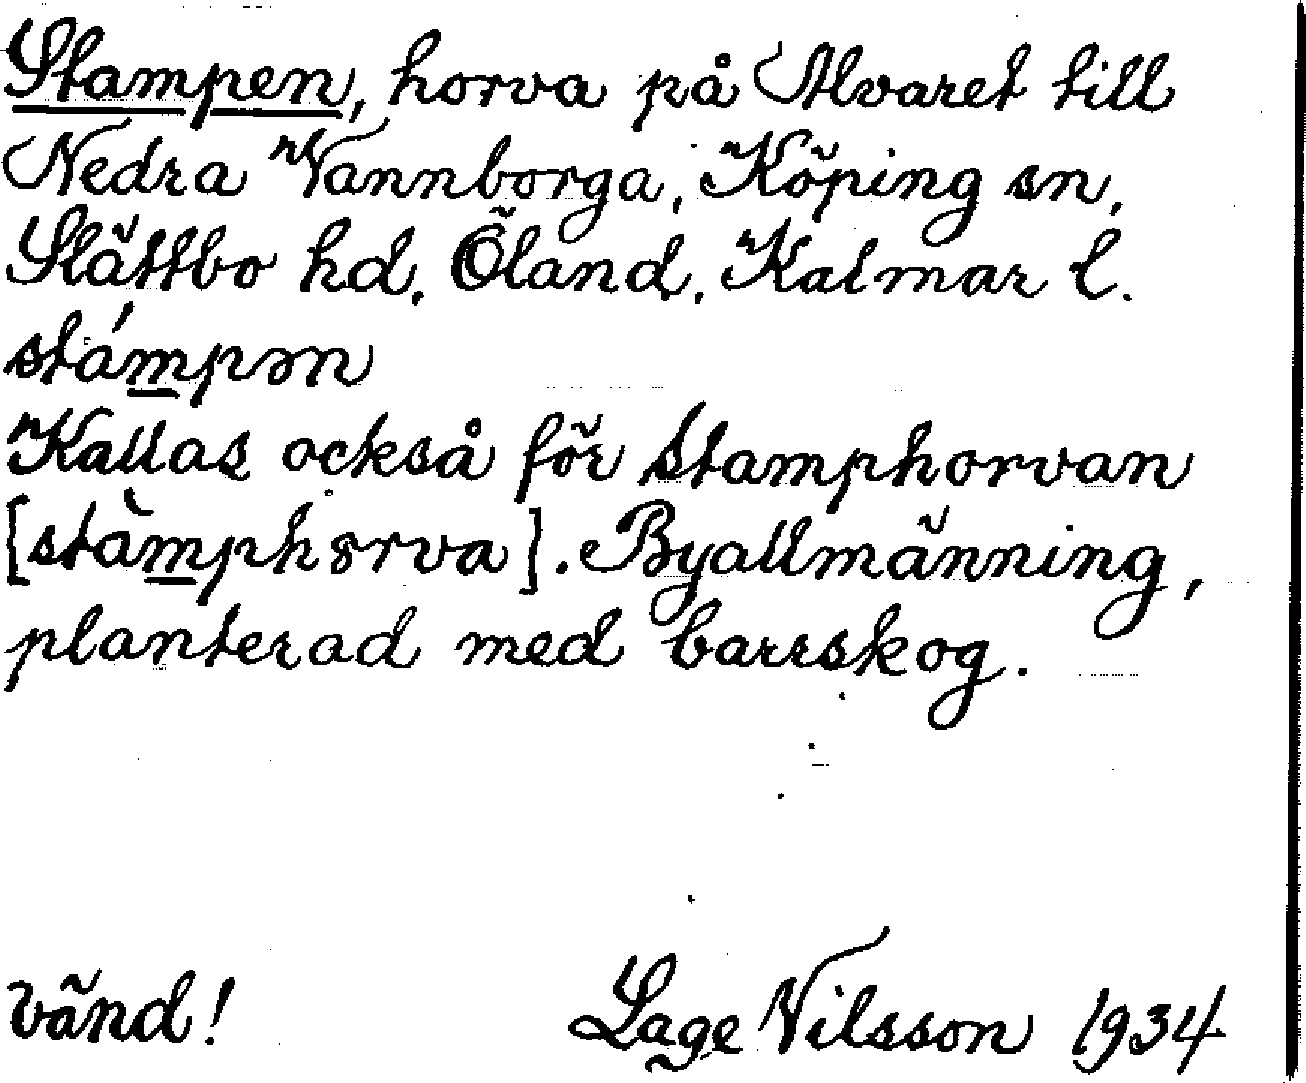 Stampen, horva på Alvaret till
Nedra Vannborga, Köping sn,
Slättbo hd, Öland, Kalmar l.
stámpən
Kallas också för Stamphorvan
[stàmphɔrva]. Byallmänning,
planterad med barrskog.
vänd! Lage Nilsson 1934